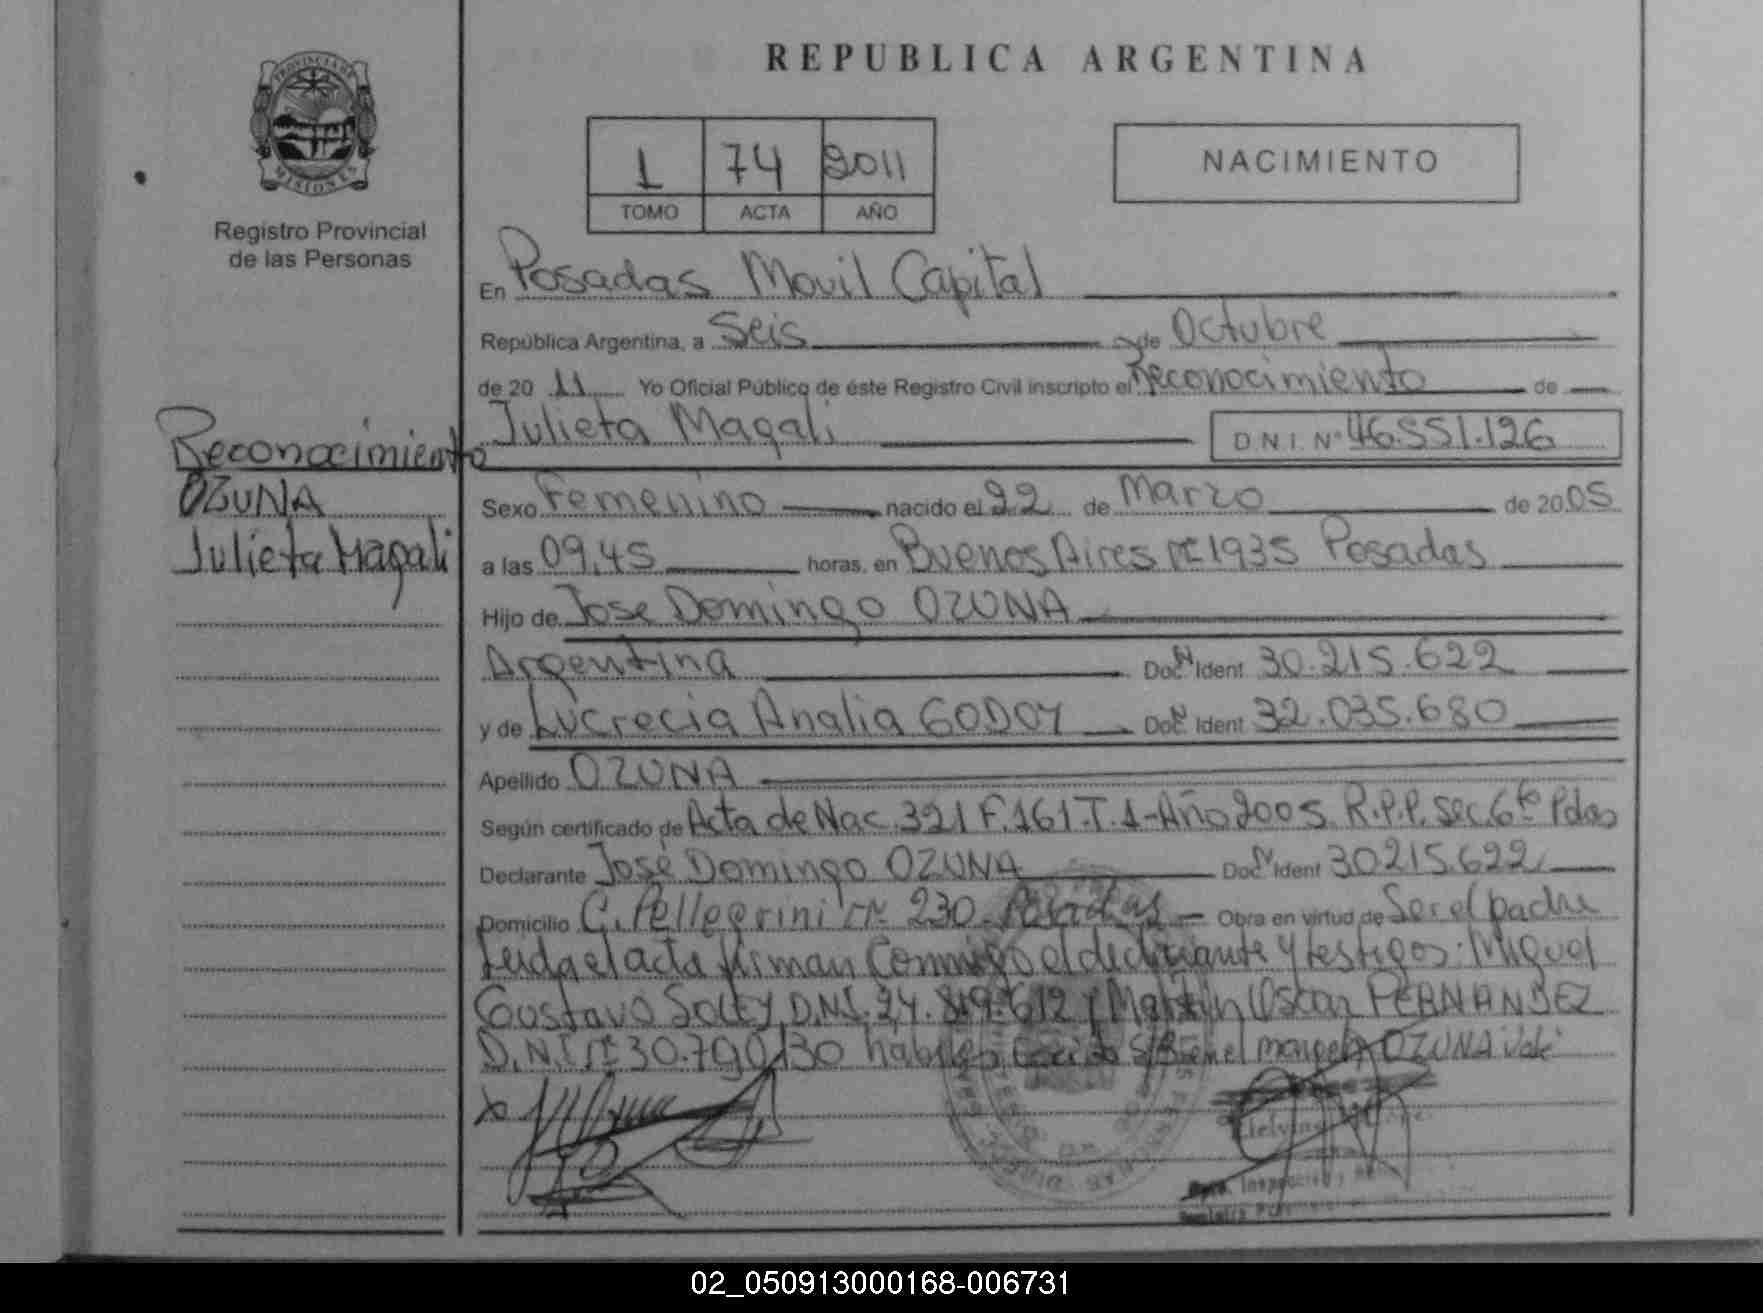 PROVINCIA DE
MISIONES
Registro Provincial
de las Personas
REPUBLICA ARGENTINA
1 74 2011
TOMO ACTA AÑO
NACIMIENTO
En Posadas Movil Capital
República Argentina, a Seis de Octubre
de 20 11 Yo Oficial Público de éste Registro Civil inscripto el Reconocimiento de
Julieta Magali D.N.I. Nº 46.551.126
Reconocimiento
OZUNA
Julieta Magali
Sexo Femenino nacido el 22 de Marzo de 2005
a las 09,45 horas, en Buenos Aires Nº 1935 Posadas
Hijo de Jose Domingo OZUNA
Argentina Doc. Nº Ident 30.215.622
y de Lucrecia Analia GODOY Doc. Nº Ident 32.035.680
Apellido OZUNA
Según certificado de Acta de Nac. 321 F. 161. T. 1 - Año 2005 R.P.P. Sec. 6ta Pdas
Declarante José Domingo OZUNA Doc. Nº Ident 30215.622
Domicilio C. Pellegrini Nº 230 - Posadas Obra en virtud de Ser el padre
Leida el acta firman Conmigo el declarante y testigos: Miguel
Gustavo Solty D.N.I. 24.819.612 y Martin Oscar FERNANDEZ
D.N.I Nº 30.790.130 habiles en el margen OZUNA Vale
02_050913000168-006731